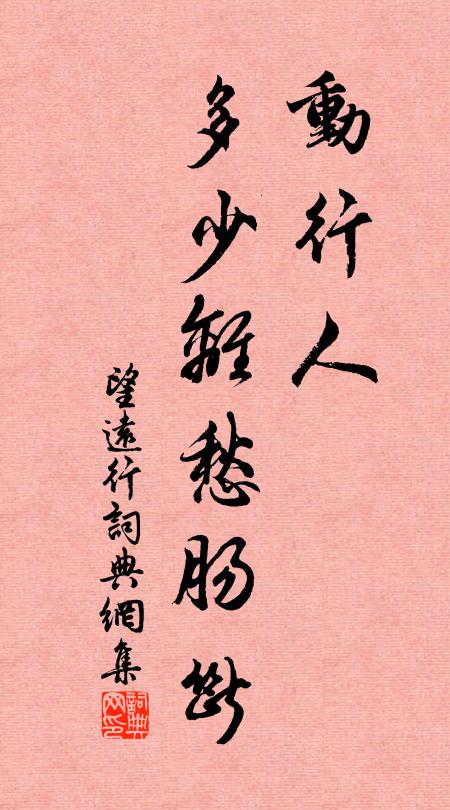 動行人
多少離愁肠斷
望遠行詞典網集
詞典
网印